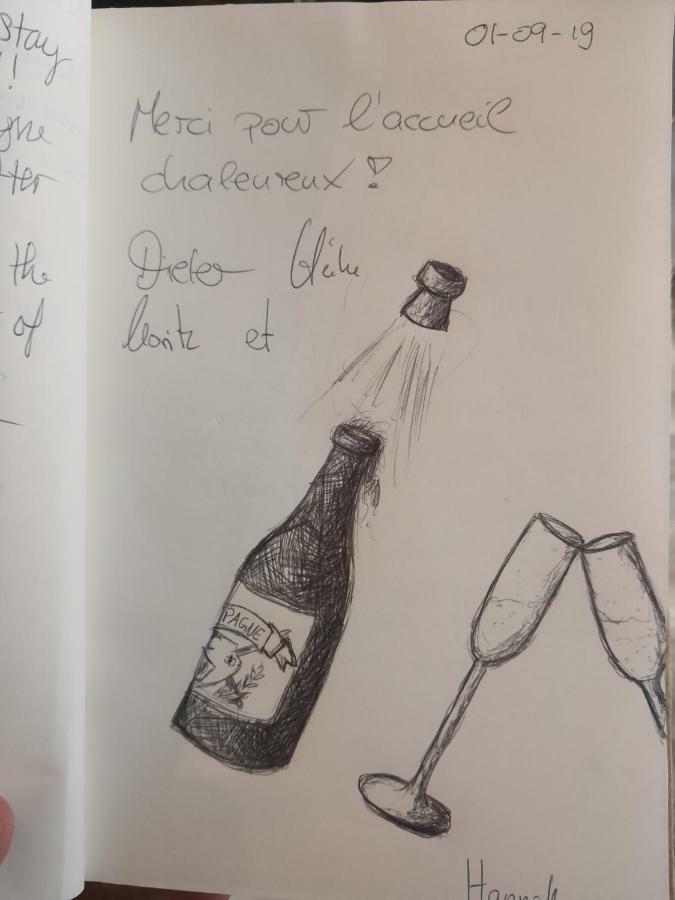 stay
!
gne
tter
the
of
01-09-19
Merci pour l'accueil
chaleureux !
Dieter
et
PAGNE
Hannah